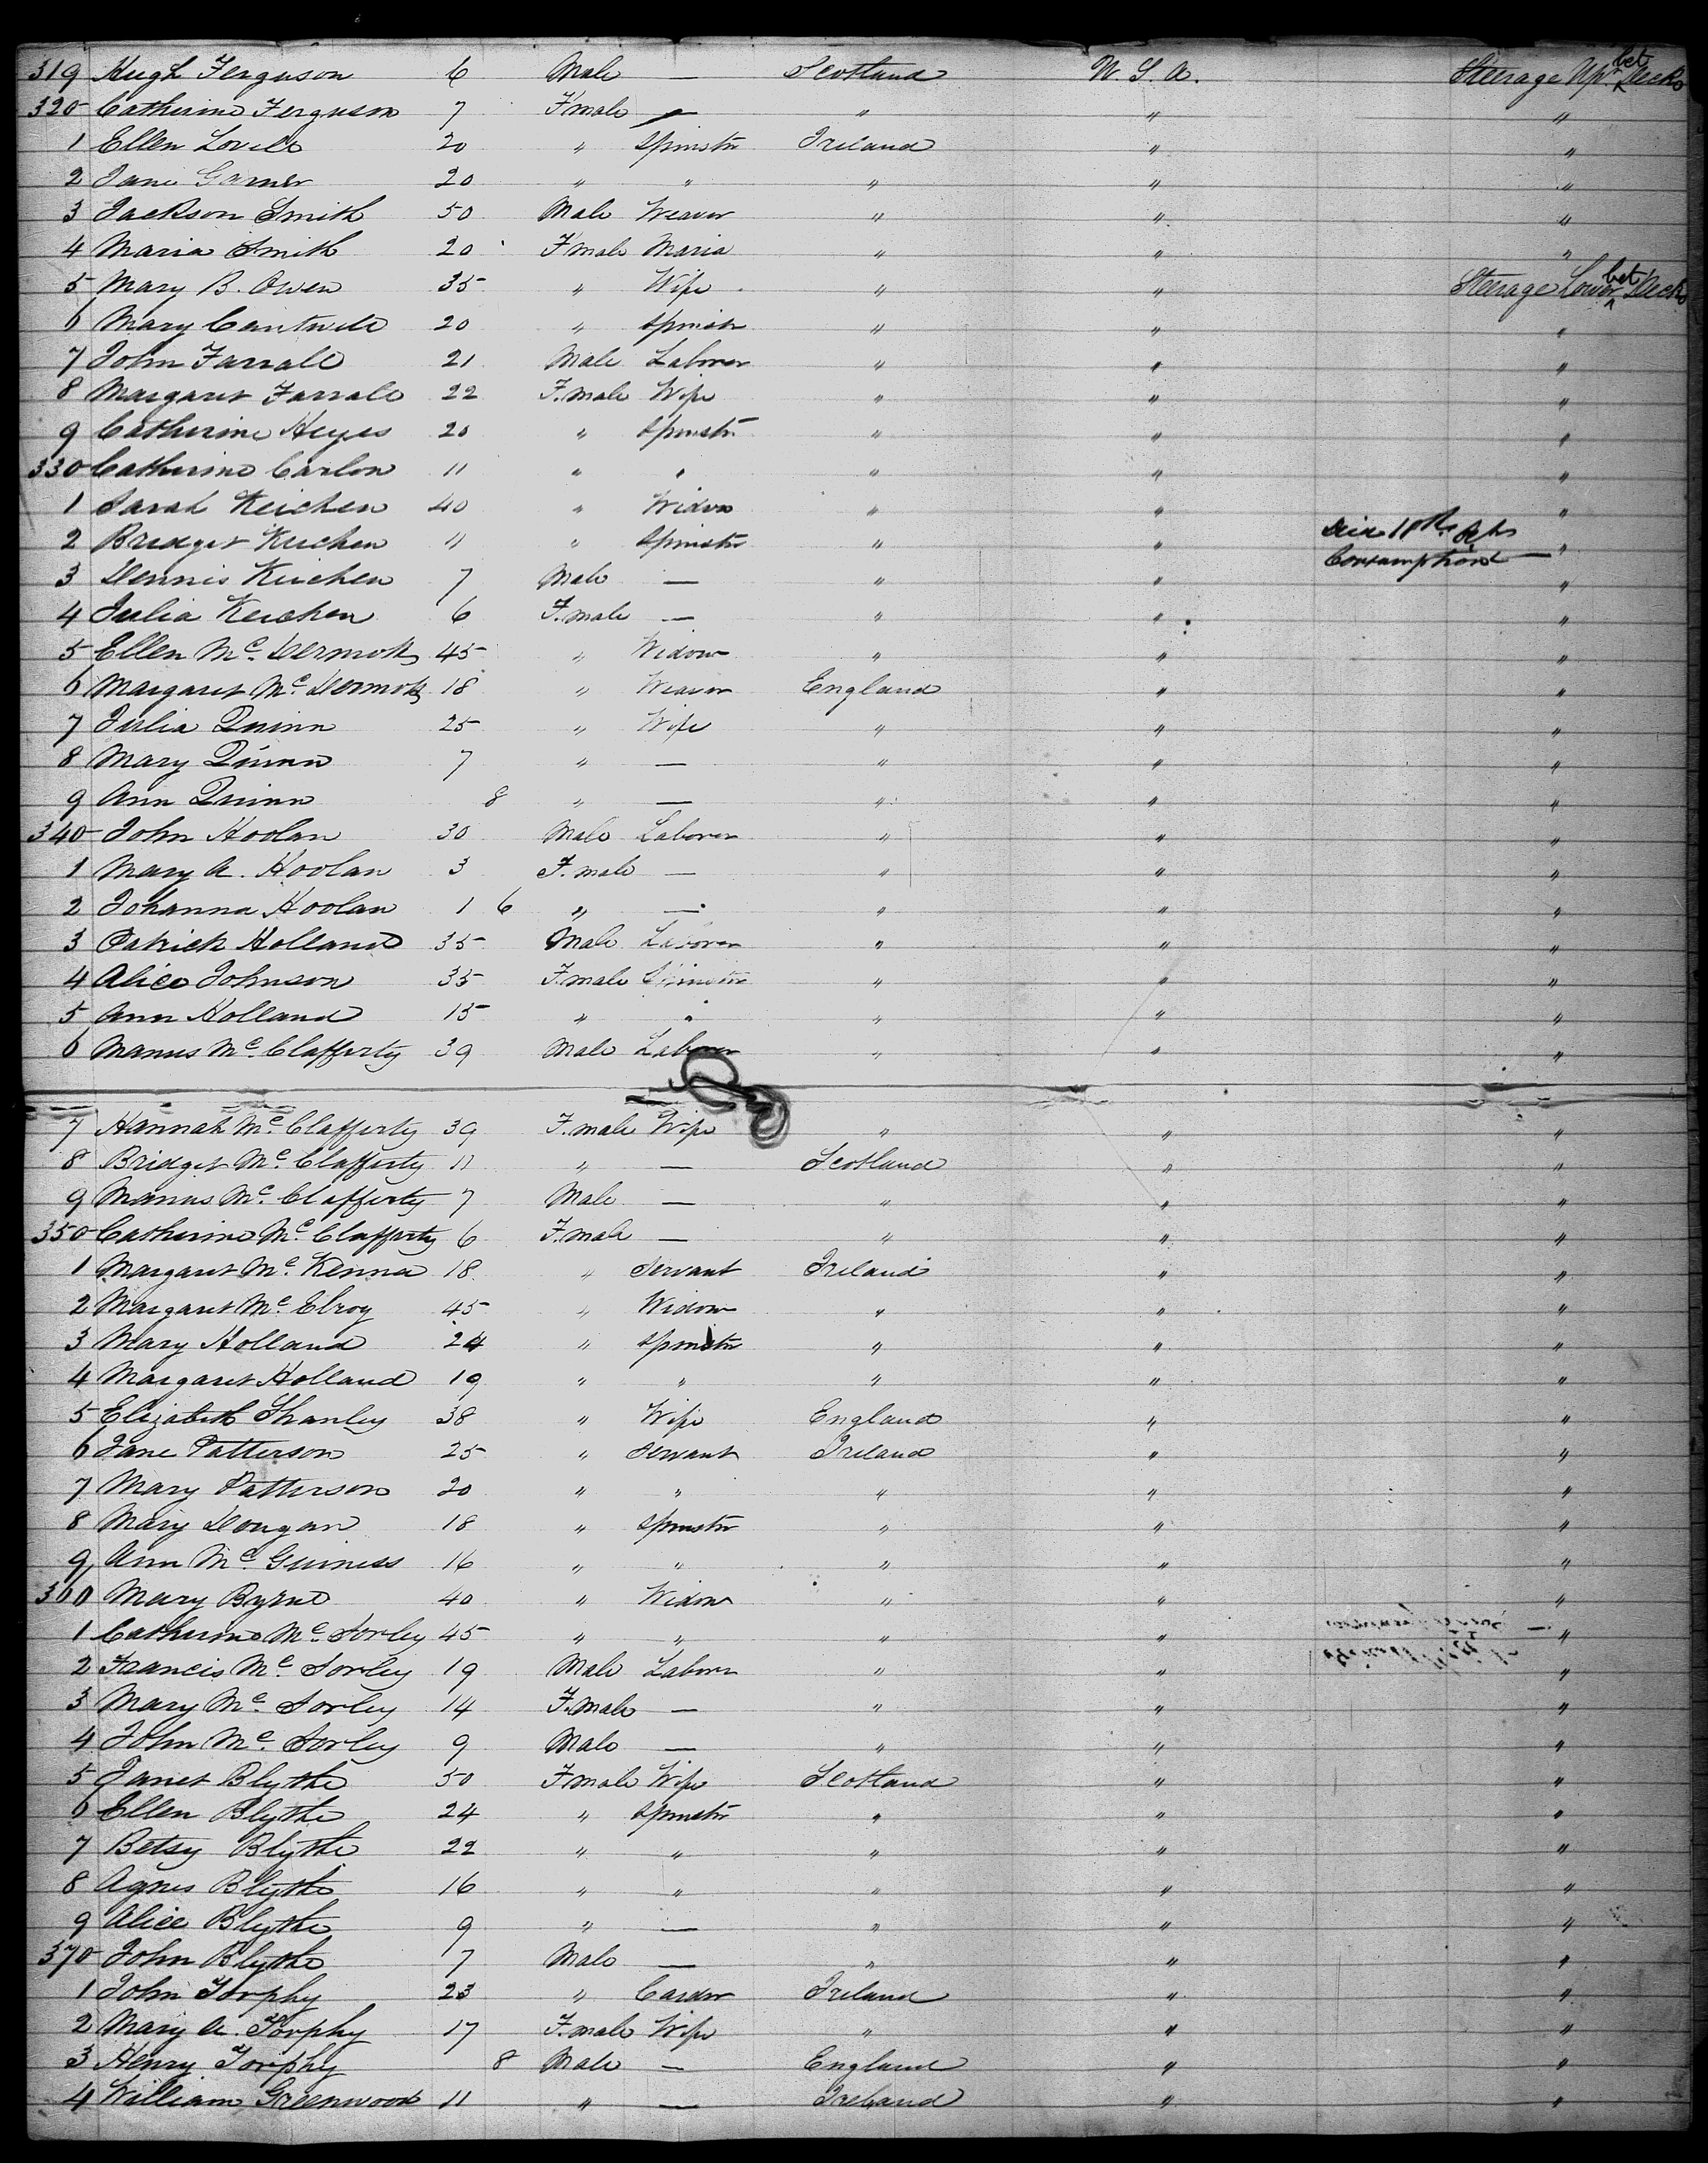 319 Hugh Ferguson 6 Male — Scotland U. S. A. Steerage Upr bet Decks
320 Catherine Ferguson 7 F'male — " " "
1 Ellen Lovell 20 " Spinstr Ireland " "
2 Jane Garner 20 " " " " "
3 Jackson Smith 50 Male Weaver " " "
4 Maria Smith 20 F'male Maria " " "
5 Mary B. Owen 35 " Wife " " Steerage Lower bet Decks
6 Mary Cantwell 20 " Spinstr " " "
7 John Farrall 21 Male Laborer " " "
8 Margaret Farrall 22 F.male Wife " " "
9 Catherine Heyes 20 " Spinstr " " "
330 Catherine Carlon 11 " " " " "
1 Sarah Keichen 40 " Widow " " "
2 Bridget Keichen 11 " Spinstr " " Died 10th Consumption "
3 Dennis Keichen 7 Male — " " "
4 Julia Keichen 6 F.male — " " "
5 Ellen Mc. Dermott 45 " Widow " " "
6 Margaret Mc. Dermott 18 " Weaver England " "
7 Julia Quinn 25 " Wife " " "
8 Mary Quinn 7 " — " " "
9 Ann Quinn 8 " — " " "
340 John Hoolan 30 Male Laborer " " "
1 Mary A. Hoolan 3 F.male — " " "
2 Johanna Hoolan 1 6 " — " " "
3 Patrick Holland 35 Male Laborer " " "
4 Alice Johnson 35 F.male Spinstr " " "
5 Ann Holland 15 " " " " "
6 Manus Mc. Clafferty 39 Male Laborer " " "
7 Hannah Mc. Clafferty 39 F.male Wife " " "
8 Bridget Mc. Clafferty 11 " — Scotland " "
9 Manus Mc. Clafferty 7 Male — " " "
350 Catherine Mc. Clafferty 6 F.male — " " "
1 Margaret Mc. Kenna 18 " Servant Ireland " "
2 Margaret Mc. Elroy 45 " Widow " " "
3 Mary Holland 24 " Spinstr " " "
4 Margaret Holland 19 " " " " "
5 Elizabeth Shanley 38 " Wife England " "
6 Jane Patterson 25 " Servant Ireland " "
7 Mary Patterson 20 " " " " "
8 Mary Dougan 18 " Spinstr " " "
9 Ann Mc. Guiness 16 " " " " "
360 Mary Byrne 40 " Widow " " "
1 Catherine Mc. Sorley 45 " " " " "
2 Francis Mc. Sorley 19 Male Laborer " " "
3 Mary Mc. Sorley 14 F.male — " " "
4 John Mc. Sorley 9 Male — " " "
5 Janet Blythe 50 F.male Wife Scotland " "
6 Ellen Blythe 24 " Spinstr " " "
7 Betsy Blythe 22 " " " " "
8 Agnes Blythe 16 " " " " "
9 Alice Blythe 9 " — " " "
370 John Blythe 7 Male — " " "
1 John Torphy 23 " Carder Ireland " "
2 Mary A. Torphy 17 F.male Wife " " "
3 Henry Torphy 8 Male — England " "
4 William Greenwood 11 " — Ireland " "